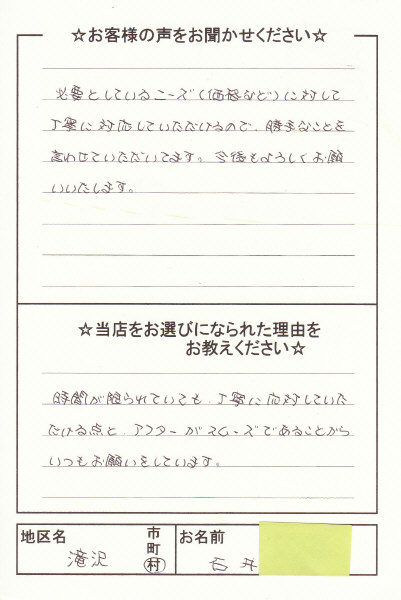 ☆お客様の声をお聞かせください☆
必要としているニーズ(価格など)に対して
丁寧に対応していただけるので、勝手なことを
言わせていただいてます。今後もよろしくお願
いいたします。
☆当店をお選びになられた理由を
お教えください☆
時間が限られていても、丁寧に応対していた
だける点と、アフターがスムーズであることから
いつもお願いをしています。
地区名 滝沢 市町村
お名前 石井